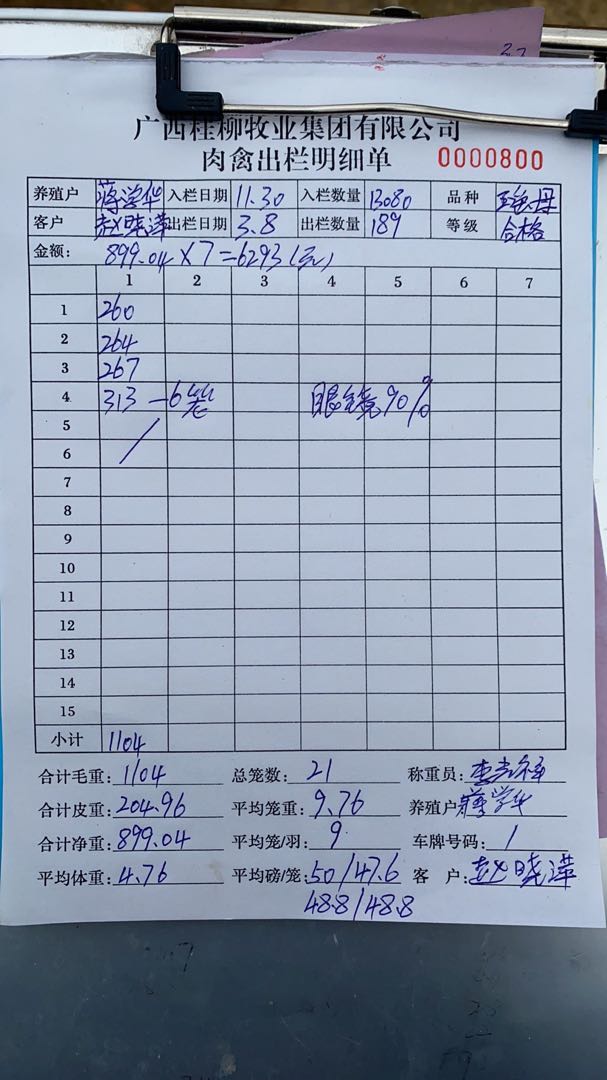 广西桂柳牧业集团有限公司
肉禽出栏明细单 0000800
养殖户 蒋学华 入栏日期 11.30 入栏数量 13080 品种
客户 赵晓萍 出栏日期 3.8 出栏数量 189 等级 合格
金额: 899.04×7=6293(元)
1 2 3 4 5 6 7
1 260
2 264
3 267
4 313 -6笼 眼镜90%
5
6 /
7
8
9
10
11
12
13
14
15
小计 1104
合计毛重: 1104 总笼数: 21 称重员:
合计皮重: 204.96 平均笼重: 9.76 养殖户 蒋学华
合计净重: 899.04 平均笼/羽: 9 车牌号码: 1
平均体重: 4.76 平均磅/笼: 50/47.6 客 户: 赵晓萍
48.8/48.8